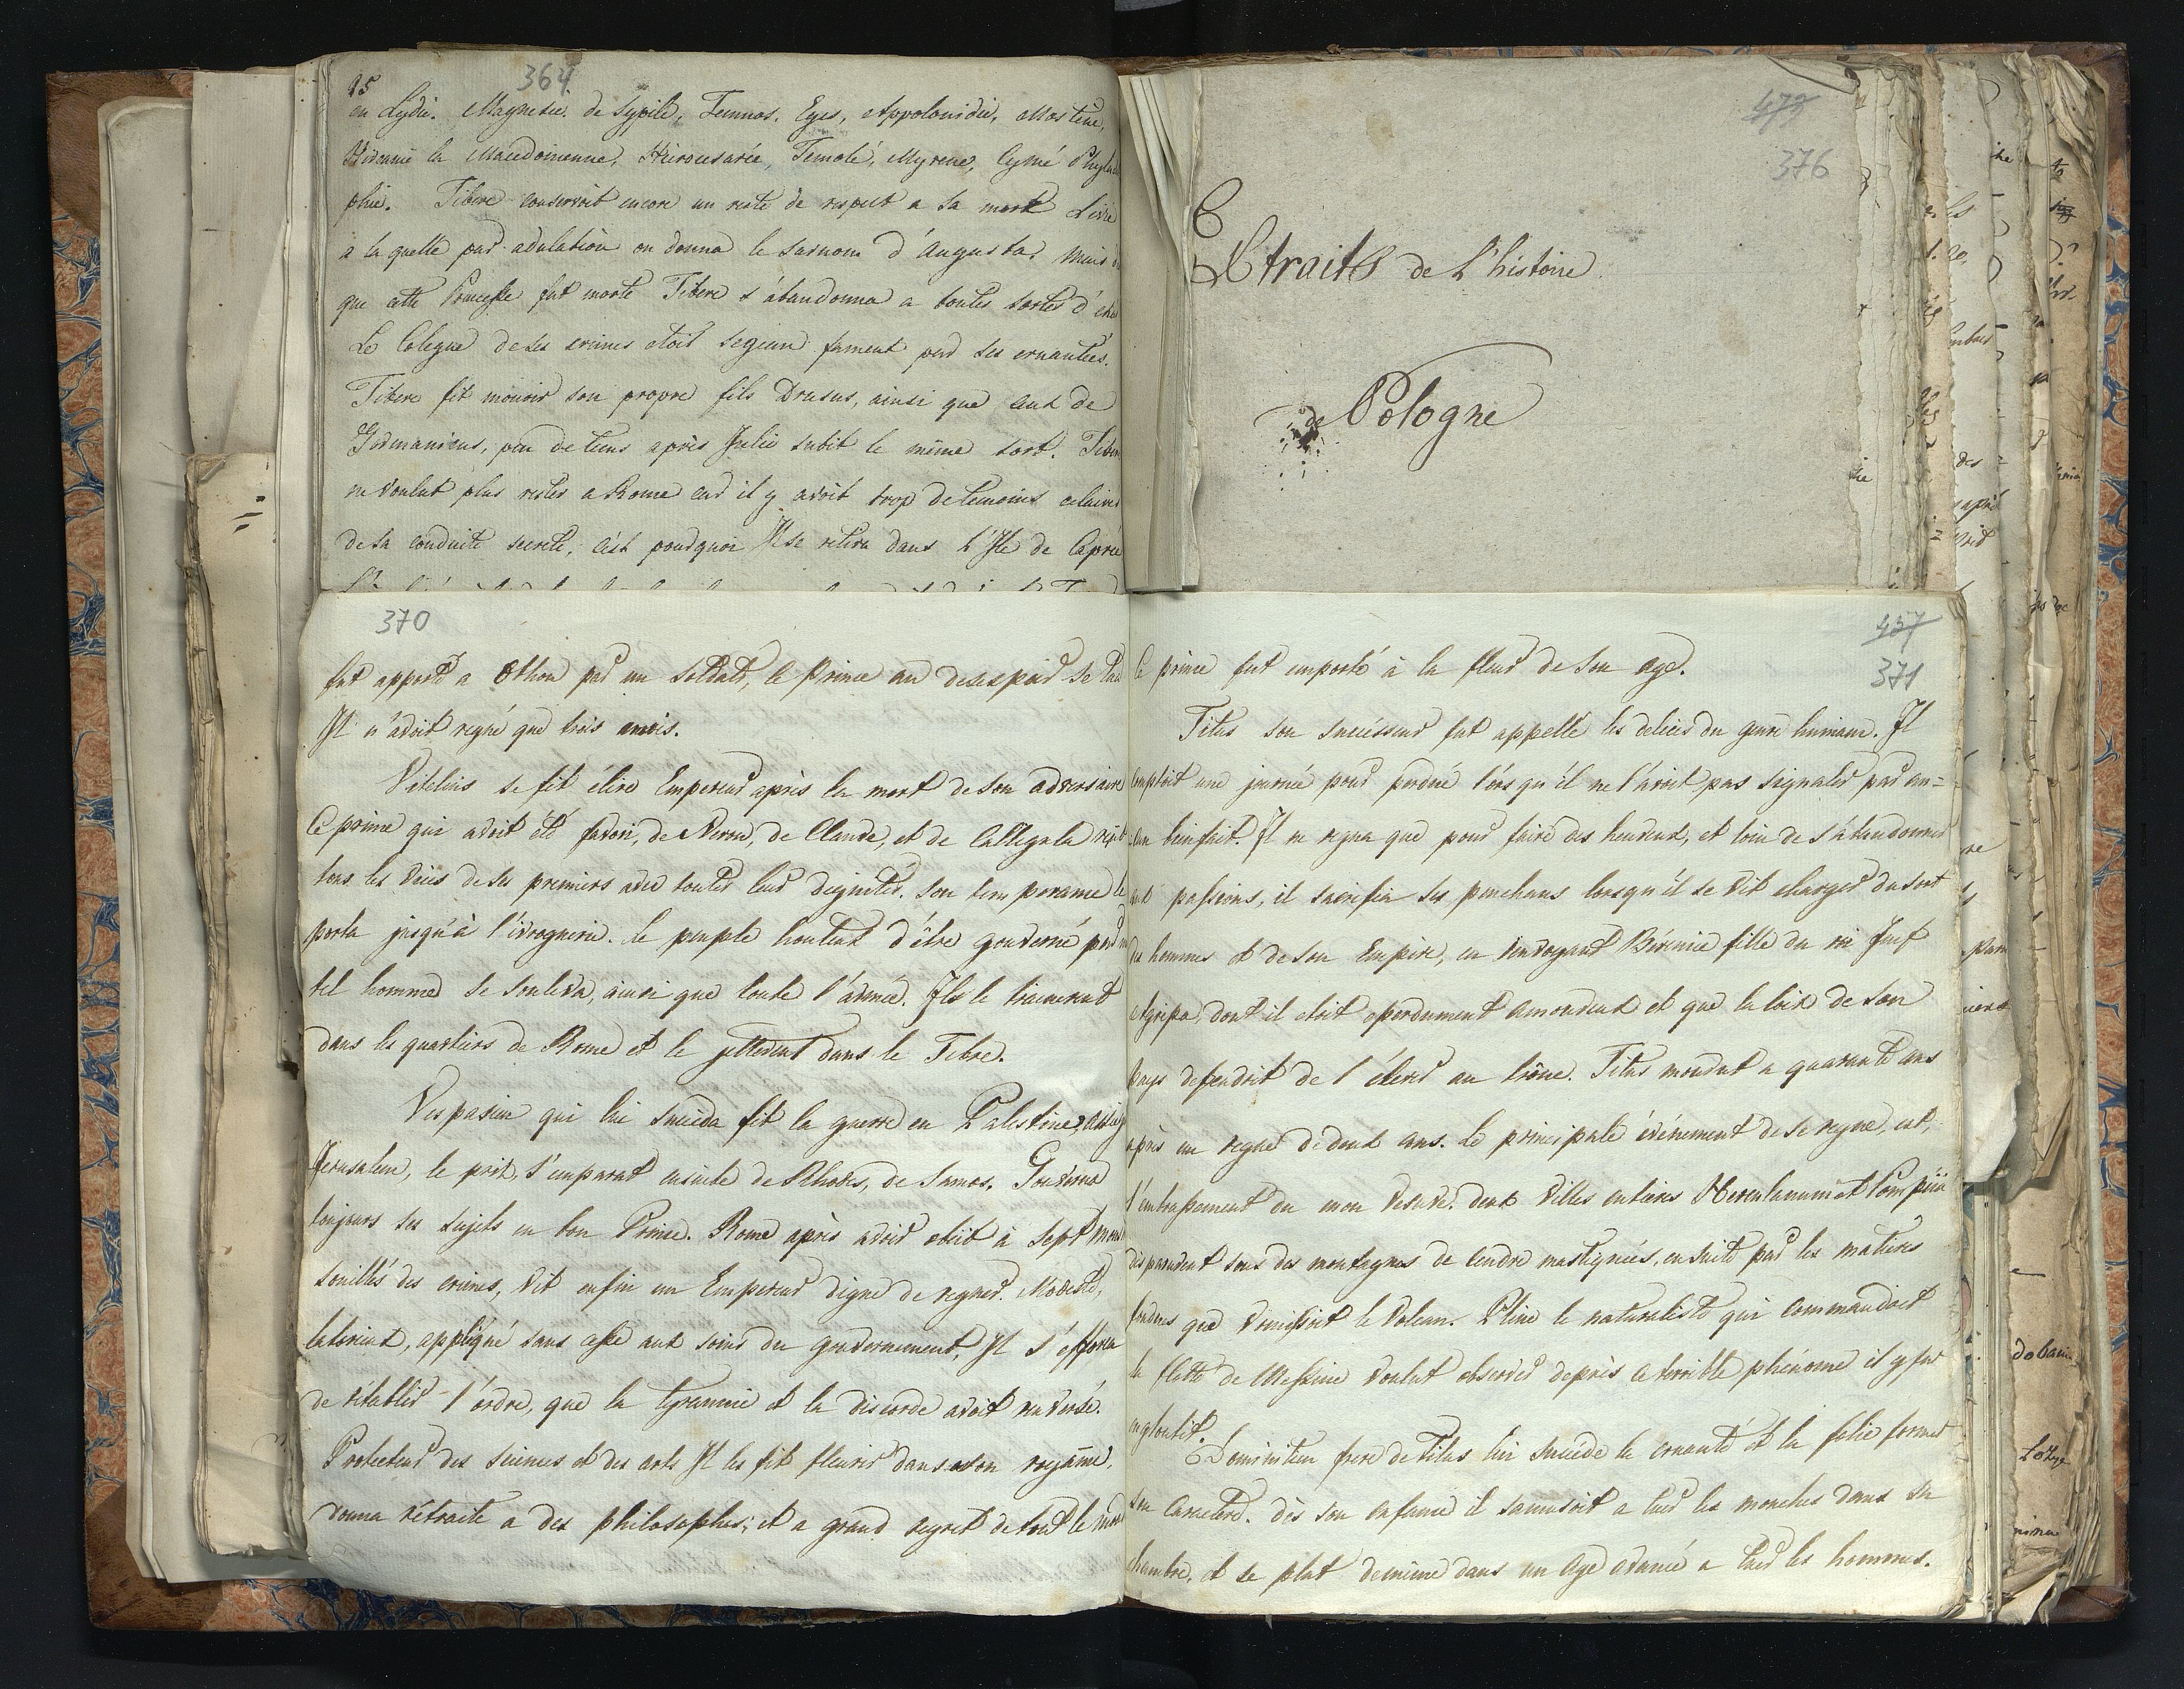 95
364
en Lydie. Magnesie de Sypile, Temnos, Eges, Appolonidie, Mostène,
Hircanie la Macedoinenne, Hierocsarée, Temolé, Myrene, Cymé
phie. Tibere conservoit encore un reste de respect a sa mort Livie
a la quelle par adulation on donna le surnom d'Augusta, mais
que cette Princesse fut morte Tibere s'abandonna a toutes sortes d'
Le Colegue de ses crimes etoit Segeun fament par ses cruautées.
Tibere fit mourir son propre fils Drusus, ainsi que ceux de
Germanicus, peu de tems après Julie subit le même sort. Tibere
ne voulut plus rester a Rome car il y avoit trop de temoins
de sa conduite secrete, c'est pourquoi Il se retira dans L'Ile de Caprée
479
376
Extraits de L'histoire
de Pologne
370
fut apporté a Othon par un Soldats, le Prince au desespoir se tua
Il n'avoit regné que trois mois.
Vitelius se fit élire Empereur après la mort de son adversaire
Ce prince qui avoit été favori, de Neron, de Claude, et de Callegula
tous les vices de ses premiers avec toutes leur degnités. Son temperame le
porta jusqu'à l'ivrognerie. le peuple honteux d'être gouverné par un
tel homme se souleva, ainsi que toute l'armée. Ils le trainerent
dans les quartiers de Rome et le jetterent dans le Tibre.
Vespasien qui lui succeda fit la guerre en Palestine,
Jerusalem, le prit, s'emparat ensuite de Rhodes, de Samos. Gouverna
toujours ses sujets en bon Prince. Rome après avoir obéit à Sept
souillés des crimes, vit enfin un Empereur digne de regner. Modeste,
laborieux, appliqué sans cesse aux soins du gouvernement, Il s'efforca
de rétablir l'ordre, que la tyrannie et la discorde avoit renversé.
Protecteur des sciences et des arts Il les fit fleurir dans son royaume,
donna rétraite a des philosophes; et a grand regret de tout le
437
371
le prince fut emporté à la fleur de son age.
Titus son succésseur fut appellé les delices du genre humain. Il
comptoit une journée pour perdue lorsqu'il ne l'avoit pas signaler par au=
cun bienfait. Il ne regna que pour faire des heureux, et loin de s'abandonner
aux passions, il sacrifia ses penchans lorsqu'il se vit charger du sort
des hommes et de son Empire, en renvoyant Bérénice fille du roi Juif
Agripa, dont il etoit eperdument amoureux et que la loix de son
pays defendoit de l'élever au trône. Titus mourut a quarante ans
après un regne de deux ans. Le principale événement de se regne, est,
l'embrassement du mon Vesuve. deux villes entieres Herculanum et Pompéia
disparurent sous des montagnes de cendre mastiquées, ensuite par les matieres
que vomissoit le volcan. Pline le naturaliste qui commandoit
la flotte de Messine voulut observer de près ce terrible phénome il y fut
engloutit.
Dominitien frere de Titus lui succéde la cruauté et la folie forme
son Caractere. dès son enfance il samusoit a tuer les mouches dans sa
chambre, et se plut de même dans un age avancé a tuer les hommes.